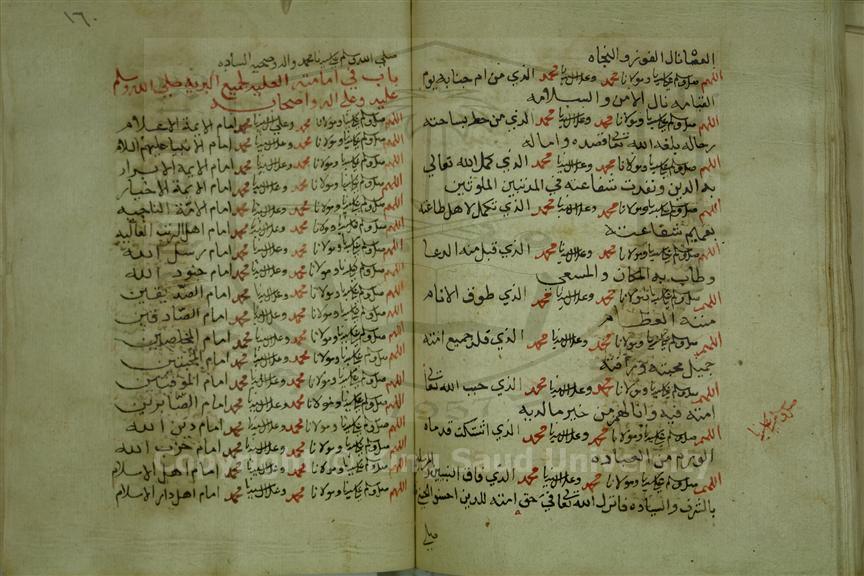 العشا نال الفوز والنجاه
اللهم صل وسلم على سيدنا ومولانا محمد وعلى ال سيدنا محمد الذي من ام جنابه يوم
القيامه نال الامن والسلامه
اللهم صل وسلم على سيدنا ومولانا محمد وعلى ال سيدنا محمد الذي من حط بساحته
رحاله بلغه الله تعالى قصده واماله
اللهم صل وسلم على سيدنا ومولانا محمد وعلى ال سيدنا محمد الذي كمل الله تعالي
به الدين ونفدت شفاعته في المذنبين الملوثين
اللهم صل وسلم على سيدنا ومولانا محمد وعلى ال سيدنا محمد الذي تكمل لاهل طاعته
بعميم شفاعته
اللهم صل وسلم على سيدنا ومولانا محمد وعلى ال سيدنا محمد الذي قبل منه الدعا
وطاب به المكان والمسعي
اللهم صل وسلم على سيدنا ومولانا محمد وعلى ال سيدنا محمد الذي طوق الانام
مننه العظام
اللهم صل وسلم على سيدنا ومولانا محمد وعلى ال سيدنا محمد الذي قلد جميع امته
جميل محبته ورأفته
اللهم صل وسلم على سيدنا ومولانا محمد وعلى ال سيدنا محمد الذي حبب الله تعالى
امته فيه وانالهم من خير ما لديه
اللهم صل وسلم على سيدنا ومولانا محمد وعلى ال سيدنا محمد الذي اشتكت قدماه
الورم من العباده
اللهم صل وسلم على سيدنا ومولانا محمد وعلى ال سيدنا محمد الذي فاق النبيين
بالشرف والسياده فانزل الله تعالى في حق امته للذين احسنوا الحسنى
١٦٠
صلي الله وسلم على سيدنا محمد واله وصحبه الساده
باب في امامته العليه لجميع البريه صلي الله وسلم
عليه وعلى اله واصحابه
اللهم صل وسلم على سيدنا ومولانا محمد وعلى ال سيدنا محمد امام الايمة الاعلام
اللهم صل وسلم على سيدنا ومولانا محمد وعلى ال سيدنا محمد امام الانبيا عليهم السلام
اللهم صل وسلم على سيدنا ومولانا محمد وعلى ال سيدنا محمد امام الايمة الابرار
اللهم صل وسلم على سيدنا ومولانا محمد وعلى ال سيدنا محمد امام الايمة الاخيار
اللهم صل وسلم على سيدنا ومولانا محمد وعلى ال سيدنا محمد امام الامة الناجيه
اللهم صل وسلم على سيدنا ومولانا محمد وعلى ال سيدنا محمد امام اهل الرتب العاليه
اللهم صل وسلم على سيدنا ومولانا محمد وعلى ال سيدنا محمد امام رسل الله
اللهم صل وسلم على سيدنا ومولانا محمد وعلى ال سيدنا محمد امام جنود الله
اللهم صل وسلم على سيدنا ومولانا محمد وعلى ال سيدنا محمد امام الصديقين
اللهم صل وسلم على سيدنا ومولانا محمد وعلى ال سيدنا محمد امام الصادقين
اللهم صل وسلم على سيدنا ومولانا محمد وعلى ال سيدنا محمد امام المخلصين
اللهم صل وسلم على سيدنا ومولانا محمد وعلى ال سيدنا محمد امام المحبين
اللهم صل وسلم على سيدنا ومولانا محمد وعلى ال سيدنا محمد امام الموقنين
اللهم صل وسلم على سيدنا ومولانا محمد وعلى ال سيدنا محمد امام الصابرين
اللهم صل وسلم على سيدنا ومولانا محمد وعلى ال سيدنا محمد امام دين الله
اللهم صل وسلم على سيدنا ومولانا محمد وعلى ال سيدنا محمد امام حزب الله
اللهم صل وسلم على سيدنا ومولانا محمد وعلى ال سيدنا محمد امام اهل الاسلام
اللهم صل وسلم على سيدنا ومولانا محمد وعلى ال سيدنا محمد امام اهل دار الاسلام
Copyright © King Saud University
1957